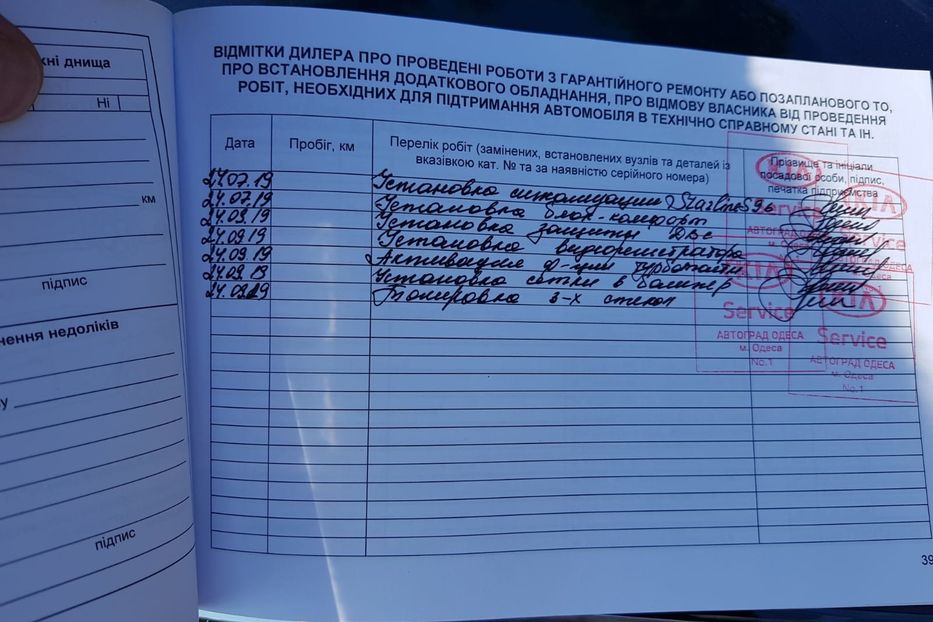 хні днища
Ні
км
підпис
нення недоліків
у
підпис
ВІДМІТКИ ДИЛЕРА ПРО ПРОВЕДЕНІ РОБОТИ З ГАРАНТІЙНОГО РЕМОНТУ АБО ПОЗАПЛАНОВОГО ТО,
ПРО ВСТАНОВЛЕННЯ ДОДАТКОВОГО ОБЛАДНАННЯ, ПРО ВІДМОВУ ВЛАСНИКА ВІД ПРОВЕДЕННЯ
РОБІТ, НЕОБХІДНИХ ДЛЯ ПІДТРИМАННЯ АВТОМОБІЛЯ В ТЕХНІЧНО СПРАВНОМУ СТАНІ ТА ІН.
Дата
Пробіг, км
Перелік робіт (замінених, встановлених вузлів та деталей із
вказівкою кат. № та за наявністю серійного номера)
Прізвище та ініціали
посадової особи, підпис,
печатка підприємства
24.07.19 Установка сигнализации StarLine S96
24.07.19 Установка блок-комфорт
24.09.19 Установка защиты Двс
24.09.19 Установка видеорегистратора
24.09.19 Активация
24.09.19 Установка сетки в бампер
Тонировка 3-х стекол
KIA
Service
АВТОГРАД ОДЕСА
м. Одеса
KIA
Service
ОДЕСА
KIA
Service
АВТОГРАД ОДЕСА
м. Одеса
No.1
KIA
Service
АВТОГРАД ОДЕСА
м. Одеса
No.1
39